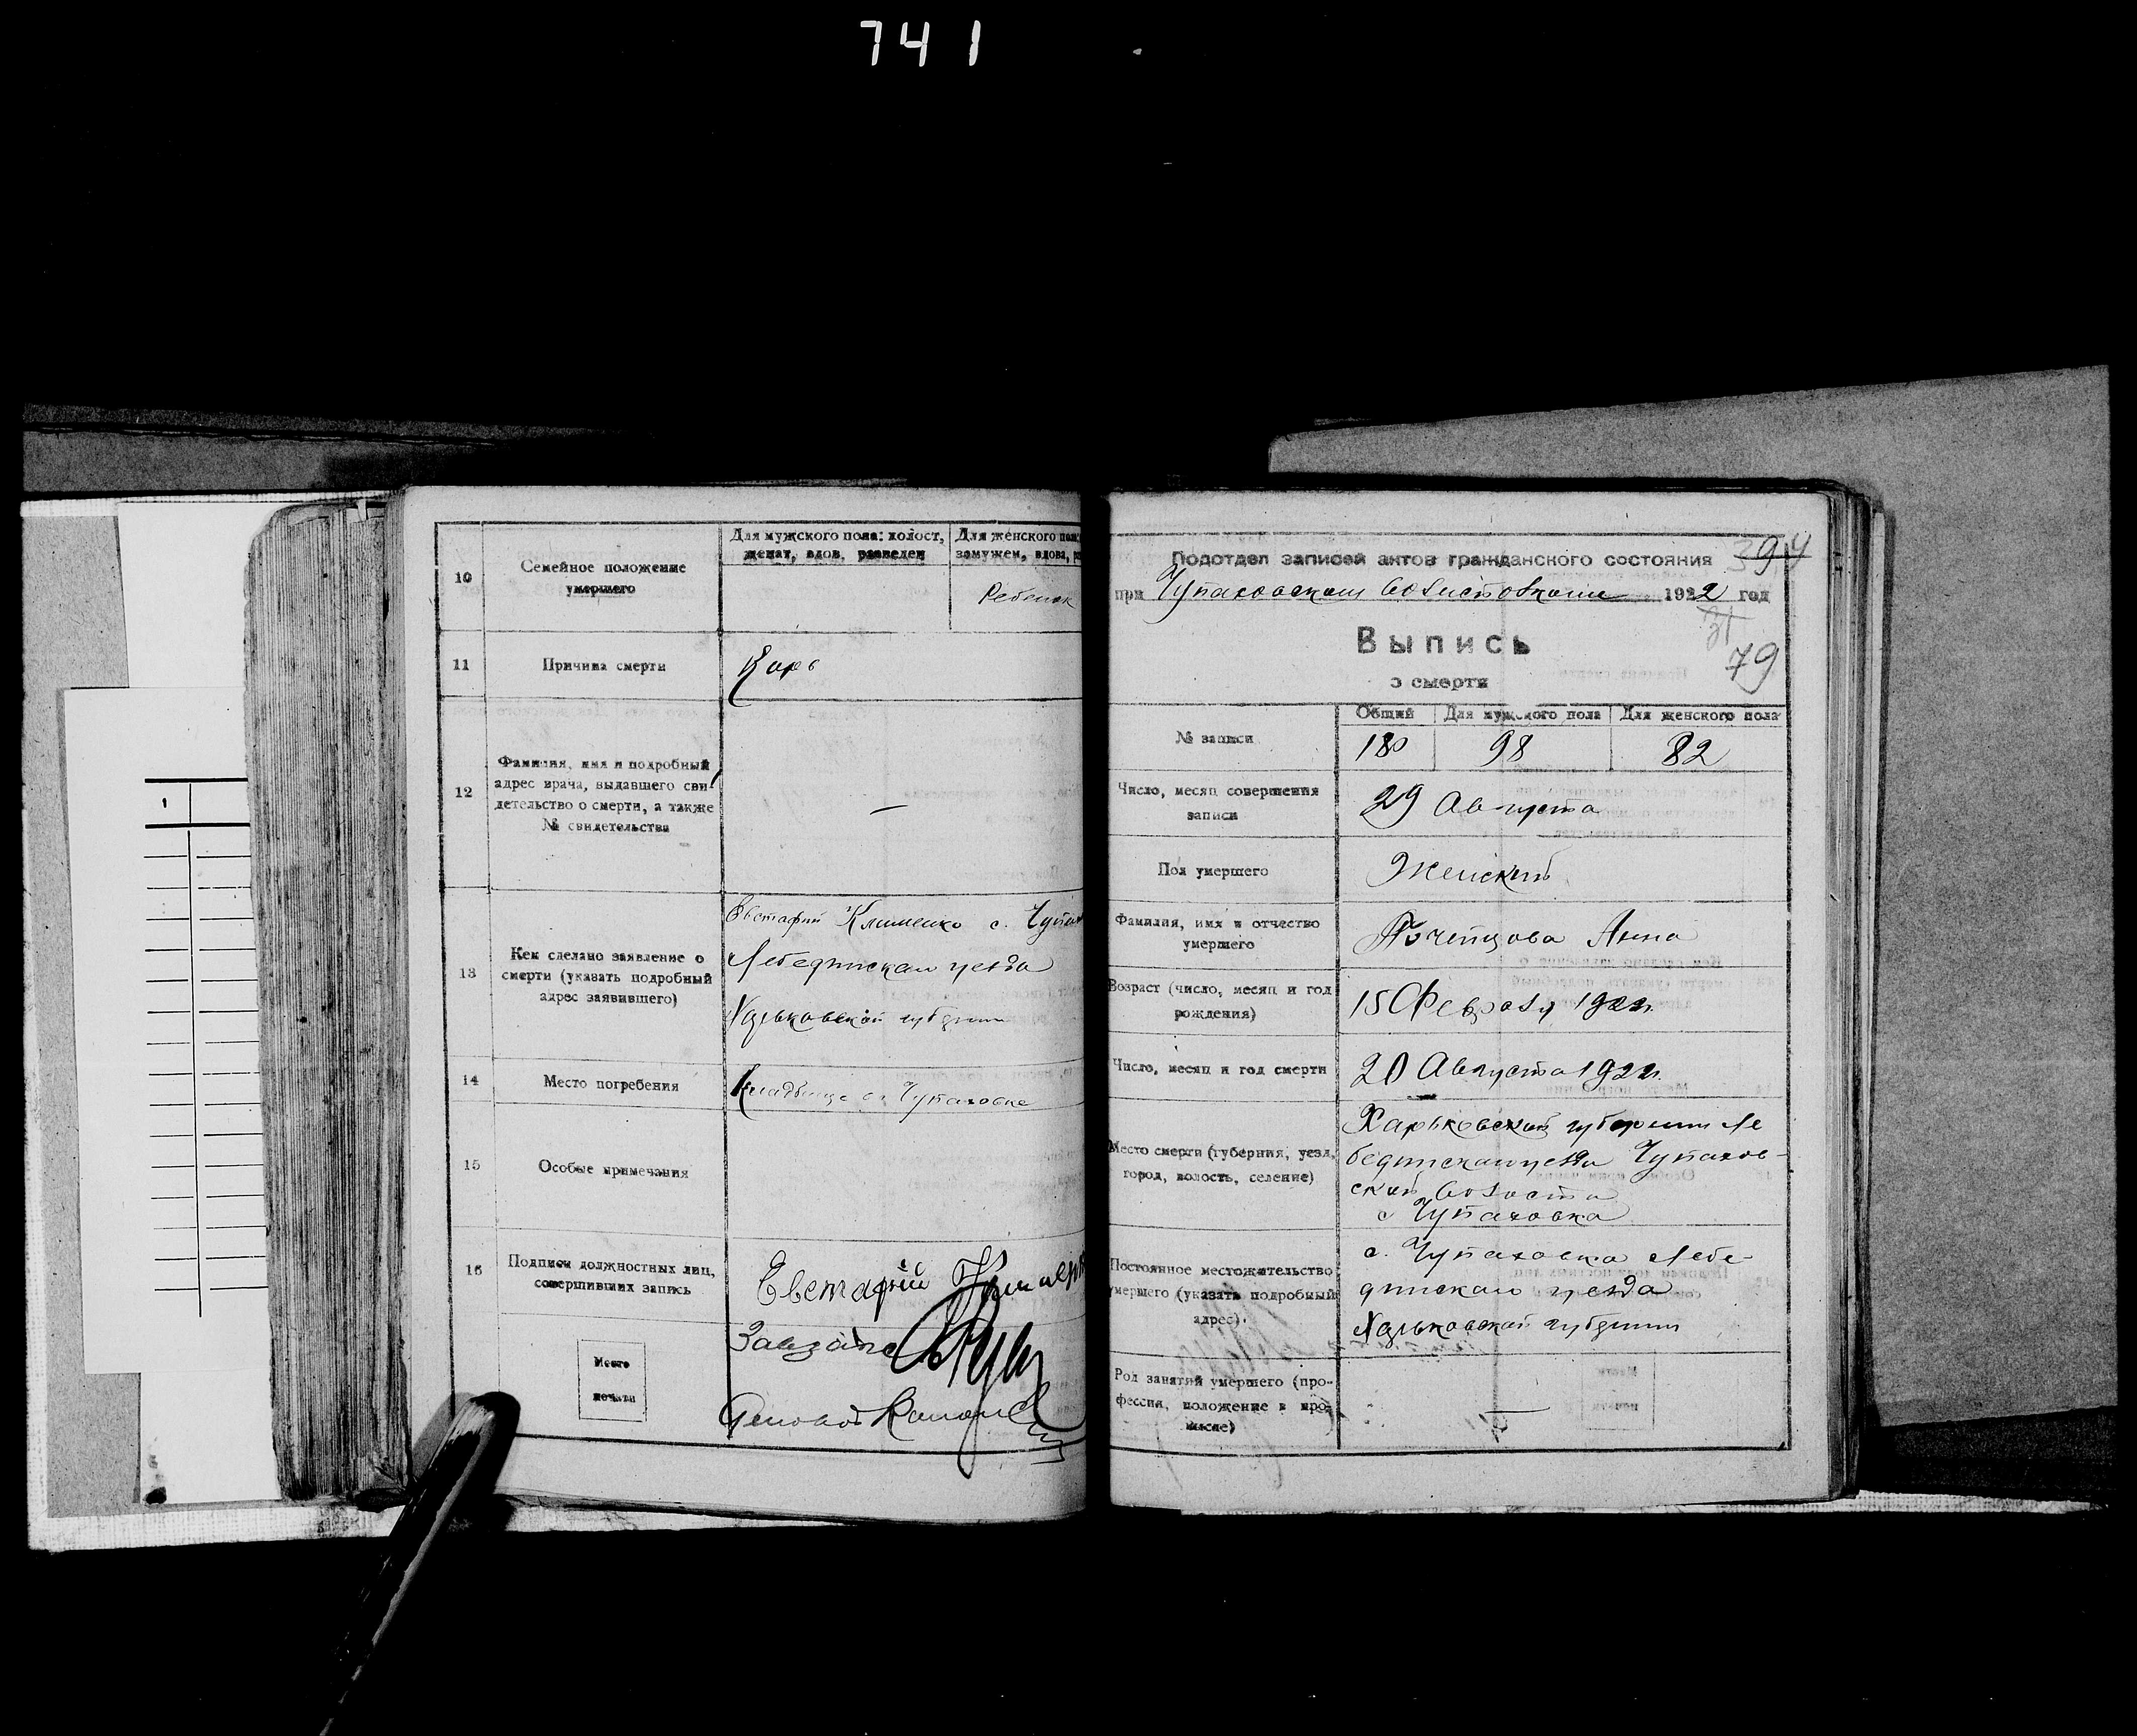 741
10
Семейное положение
умершего
Для мужского пола: холост,
женат, вдов, разведен
Для женского пола:
замужем, вдова,
Ребенок
11
Причина смерти
Корь
12
Фамилия, имя и подробный
адрес врача, выдавшего сви-
детельство о смерти, а также
№ свидетельства
—
13
Кем сделано заявление о
смерти (указать подробный
адрес заявившего)
Евстафий Клименко с. Чупах
Лебединскаго уезда
Харьковской губернии
14
Место погребения
Кладбище с. Чупаховке
15
Особые примечания
16
Подписи должностных лиц,
совершивших запись
Евстафий
Место
печати
394
Подотдел записей актов гражданского состояния
при Чупаховском волисполкоме 1922 год
31
79
Выпись
о смерти
№ записи
Общий
Для мужского пола
Для женского пола
180
98
82
Число, месяц совершения
записи
29 Августа
Пол умершего
Женский
Фамилия, имя и отчество
умершего
Почепцова Анна
Возраст (число, месяц и год
рождения)
15 Февраля 1922 г.
Число, месяц и год смерти
20 Августа 1922 г.
Место смерти (губерния, уезд,
город, волость, селение)
Харьковской губернии Ле
бединскаго уезда Чупахов-
ской волости
с Чупаховка
Постоянное местожительство
умершего (указать подробный
адрес).
с. Чупаховка Лебе-
динскаго уезда
Харьковской губернии
Род занятий умершего (про-
фессия, положение в про-
мысле)
—